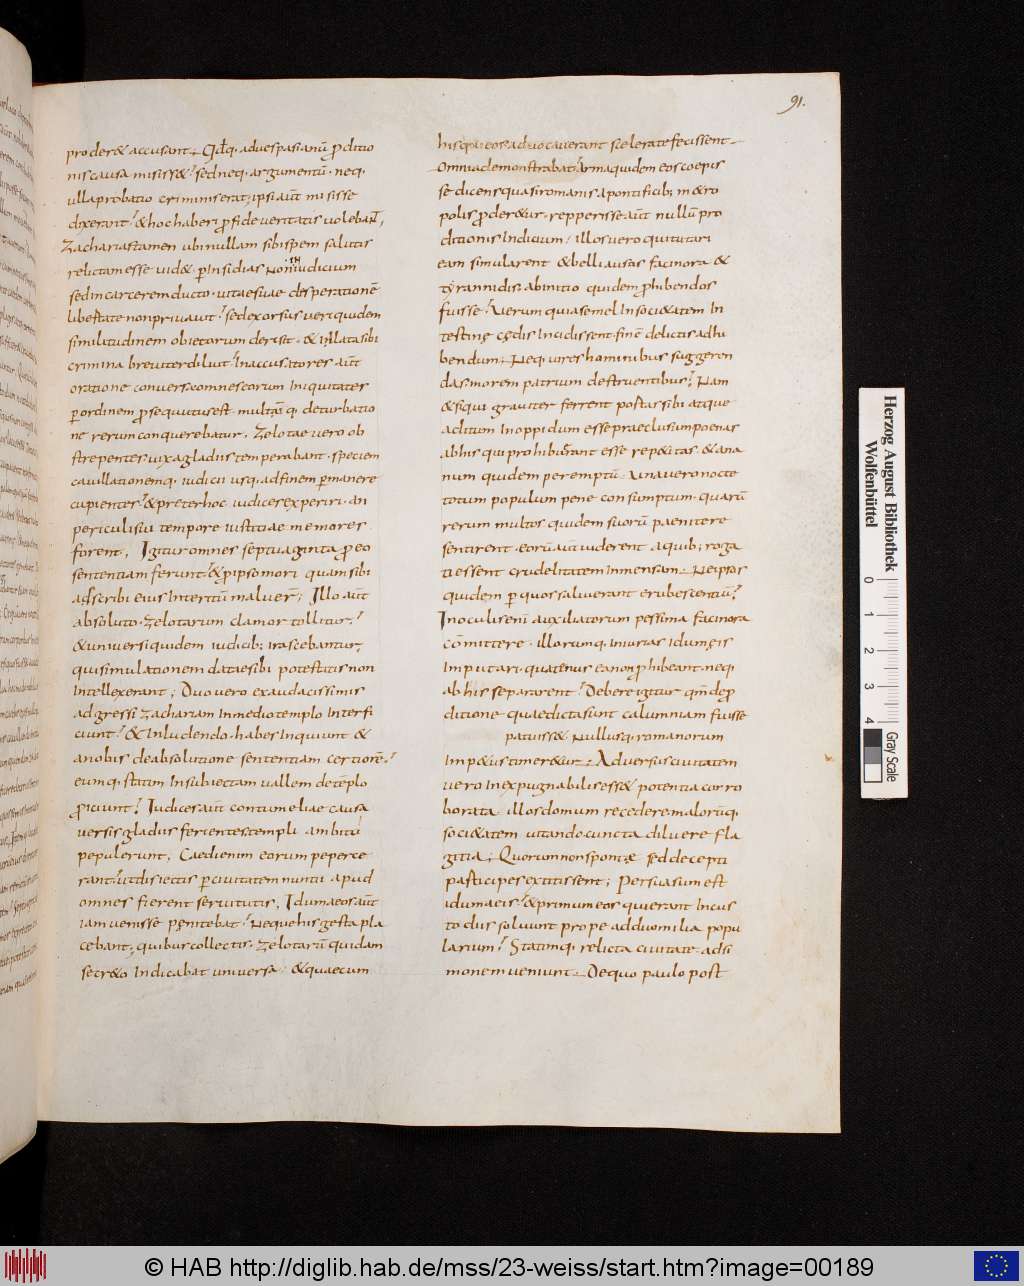 91.
proder& accusant. Qđq. aduespasianū p̄ditio
nis causa misiss&; sed neq. argumentū. neq.
ulla probatio criminis erat; ipsi aūt misisse
dixerant; & hoc haberi p̄ fide ueritatis uolebant,
Zacharias tamen ubi nullam sibi spem salutis
relictam esse uid& p insidias non in iudicium
sed in carcerem ducto. uitae suae desperationē
libertate non priuauit; sed exorsus ueri quidem
similitudinem obiectarum derisit. & inlata sibi
crimina breuiter diluit; In accusatores aūt
oratione conuersa omnes eorum iniquitates
p ordinem p̄sequutus est multūq. deturbatio
ne rerum conquerebatur. Zelotae uero ob
strepentes uix a gladiis temperabant. speciem
cauillationemq. iudicii usq. ad finem pmanere
cupientes; & preterhoc iudices experiri. an
periculi sui tempore iustitiae memores
forent; Igitur omnes septuaginta p̄ eo
sententiam ferunt; & p̄ ipso mori quam sibi
adscribi eius interitū maluer̄; Illo aūt
absoluto. Zelotarum clamor tollitur;
& uniuersi quidem iudicib; irascebantur,
qui simulationem datae sibi potestatis non
intellexerant; Duo uero ex audacissimis
adgressi zachariam in medio templo interfi
ciunt; & inludendo. habes inquiunt &
a nobis de absolutione sententiam certiorē;
eumq. statim in subiectam uallem de tēplo
p̄iciunt; Iudices aūt contumeliae causa
uersis gladiis ferientes templi ambitu
pepulerunt; Caedi enim eorum peperce
rant; ut disiectis p ciuitatem nuntii apud
omnes fierent seruitutis. Idumaeos aūt
iam uenisse pęnitebat; Neque his gesta pla
cebant, quibus collectis. Zelotarū quidam
secr&o indicabat uniuersa; & quaecum
his qui eos aduocauerant scelerate fecissent
omnia demonstrabat; arma quidem eos coepis
se dicens quasi romanis a pontificib; m&ro
polis p̄der&ur. repperisse aūt nullū pro
ditionis indicium; illos uero qui tutari
eam simularent & belli ausas facinora &
tyrannidis. ab initio quidem p̄hibendos
fuisse; Uerum quia semel in soci&atem in
testinę cędis incidissent. finē delictis adhi
bendum. Neq. uires hominibus suggeren
das morem patrium destruentibus; Nam
& si qui grauiter ferrent portas sibi atque
aditum in oppidum esse praeclusum poenas
ab his qui prohibuerant esse rep&itas. & ana
num quidem peremptū. Una uero nocte
totum populum pene consumptum. quarū
rerum multos quidem suorū paenitere
sentirent. eorū aūt uiderent a quib; roga
ti essent crudelitatem inmensam. Ne ipsos
quidem p quos saluerant erubescentiū;
In oculis enī auxiliatorum pessima facinora
cōmittere. illorumq. iniurias idumęis
imputari. quatenus ea non p̄hibeant. neq.
ab his separarent; Debere igitur qm̄ de p̄
ditione quae dicta sunt calumniam fuisse
patuiss&. Nullusq. romanorum
imp&us timer&ur. Aduersus ciuitatem
uero inexpugnabilis ess& potentia corro
borata illos domum recedere malorūq.
soci&atem uitando cuncta diluere fla
gitia; Quorum non sponte sed decepti
participes extitissent; Persuasum est
idumaeis; & primum eos qui erant in cus
todiis soluunt prope ad duo milia popu
larium; Statimq. relicta ciuitate ad si
monem ueniunt. De quo paulo post
Herzog August Bibliothek
Wolfenbüttel
0 1 2 3 4
Gray Scale
© HAB http://diglib.hab.de/mss/23-weiss/start.htm?image=00189